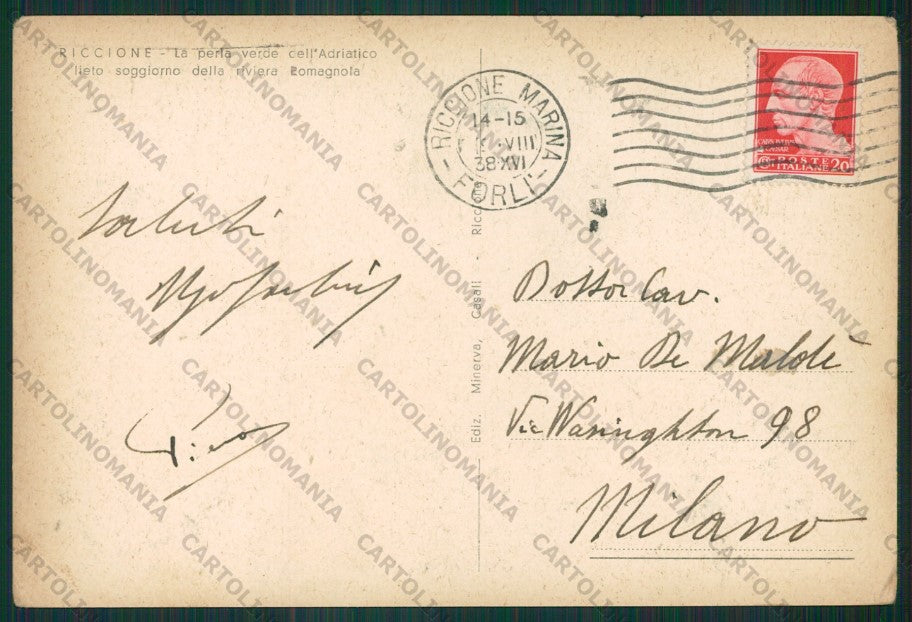 RICCIONE - La perla verde dell'Adriatico
lieto soggiorno della riviera Romagnola
RICCIONE MARINA
14-15
VIII
38·XVI
- FORLI' -
POSTE 20
ITALIANE
Saluti
Ediz. Minerva, Casali
Dottor Cav.
Mario De Maldè
Via Wasinghton 98
Milano
CARTOLINOMANIA